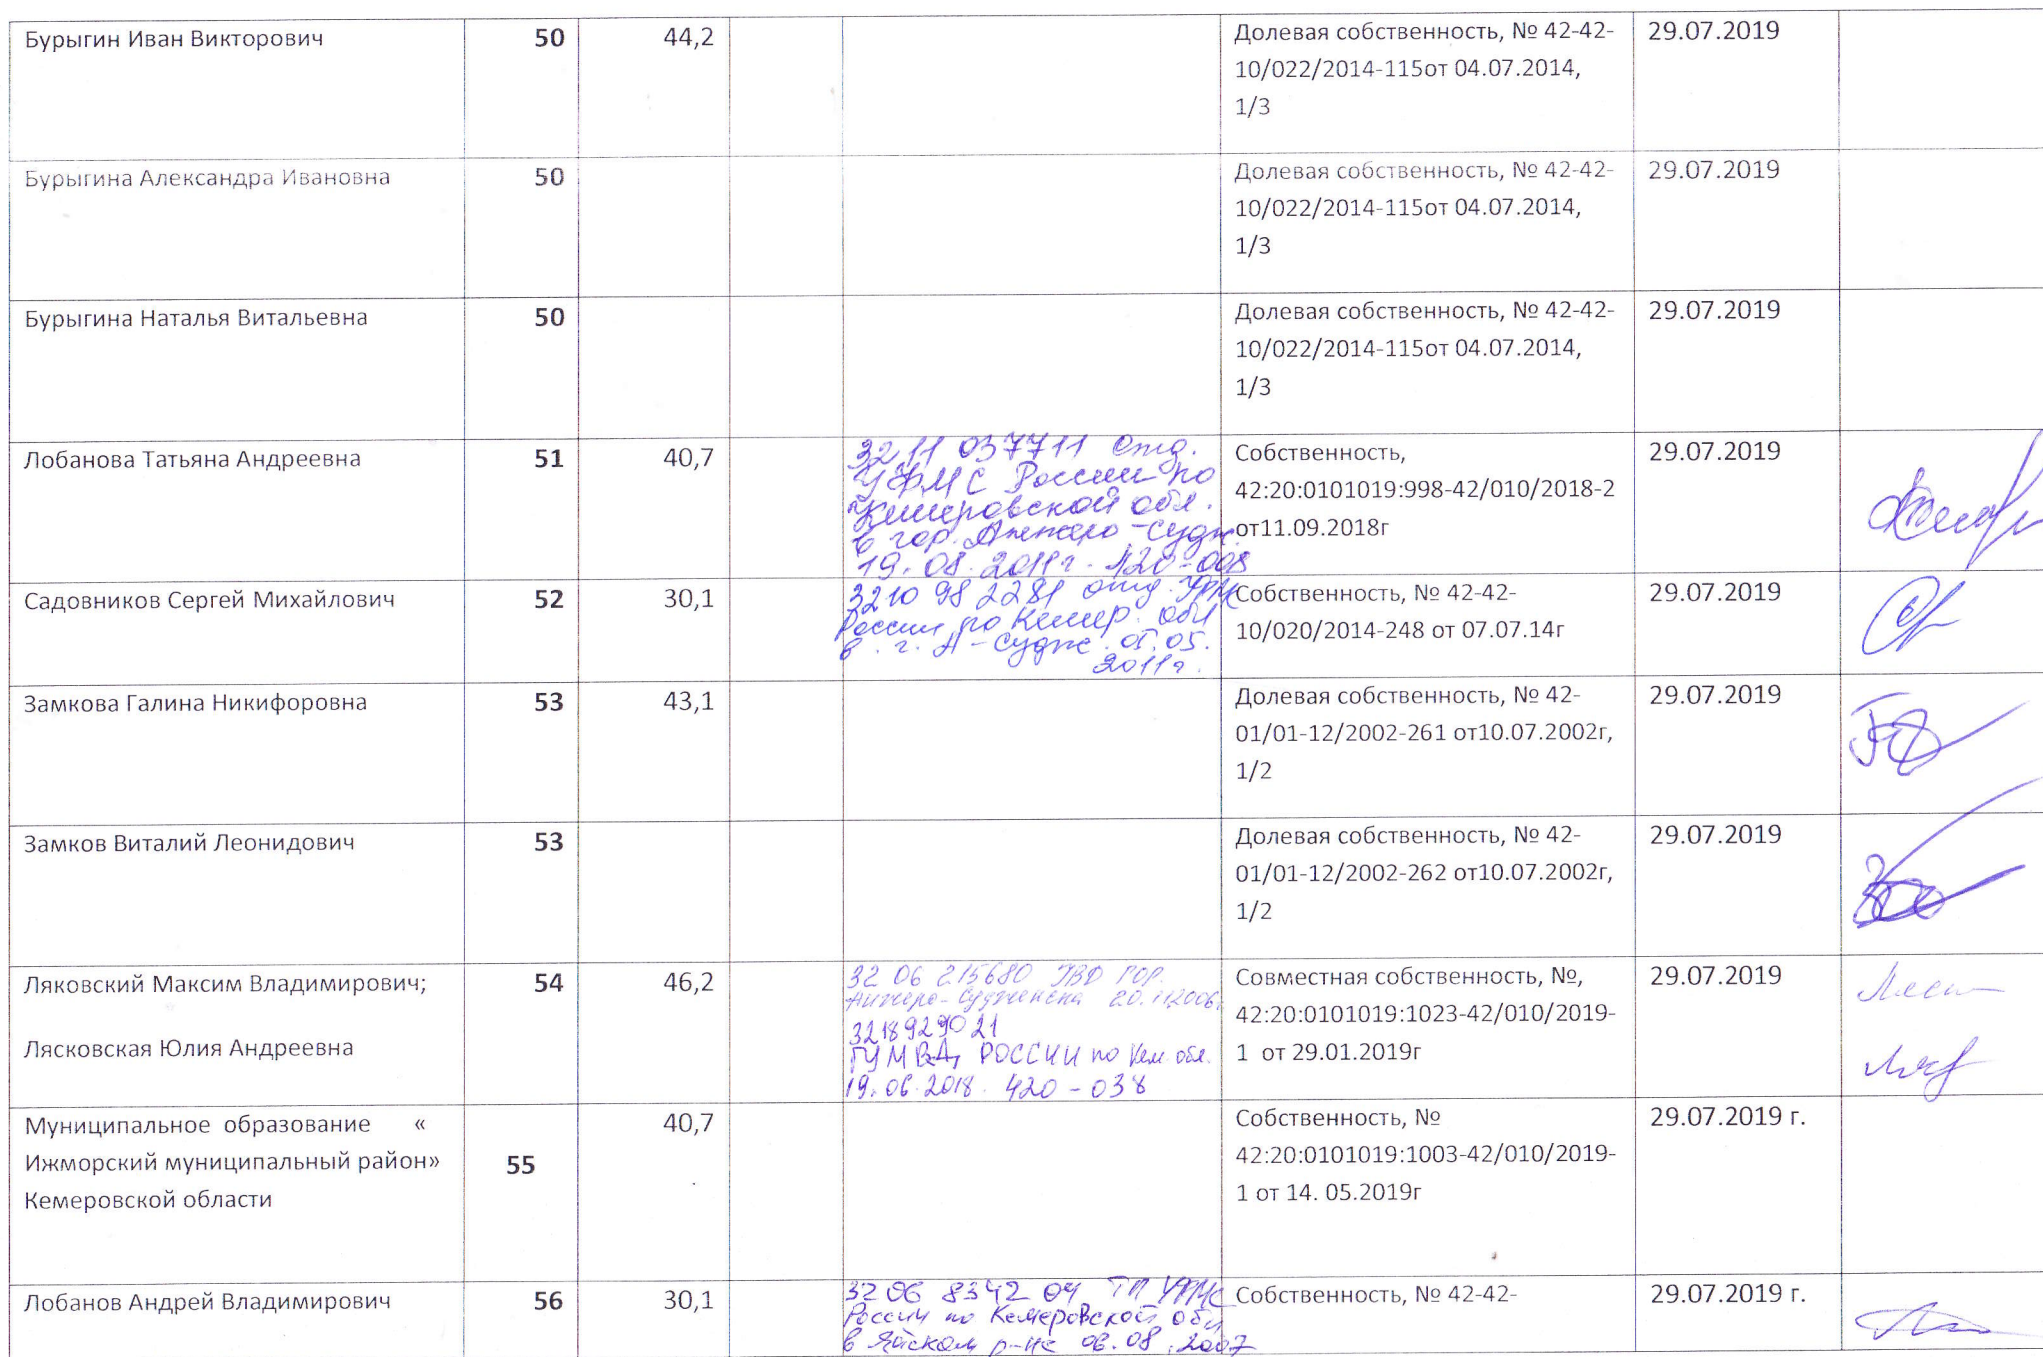 Бурыгин Иван Викторович 50 44,2 Долевая собственность, № 42-42-
10/022/2014-115от 04.07.2014,
1/3 29.07.2019
Бурыгина Александра Ивановна 50 Долевая собственность, № 42-42-
10/022/2014-115от 04.07.2014,
1/3 29.07.2019
Бурыгина Наталья Витальевна 50 Долевая собственность, № 42-42-
10/022/2014-115от 04.07.2014,
1/3 29.07.2019
Лобанова Татьяна Андреевна 51 40,7
3211 037711 отд.
УФМС России по
Кемеровской обл.
в гор. Анжеро-Судж.
19.08.2011г. 420-008
Собственность,
42:20:0101019:998-42/010/2018-2
от11.09.2018г
29.07.2019
Садовников Сергей Михайлович 52 30,1
3210 982281 отд. УФМС
России по Кемер. обл
в. г. А-Судж. 05.05.
2011г.
Собственность, № 42-42-
10/020/2014-248 от 07.07.14г
29.07.2019
Замкова Галина Никифоровна 53 43,1 Долевая собственность, № 42-
01/01-12/2002-261 от10.07.2002г,
1/2 29.07.2019
Замков Виталий Леонидович 53 Долевая собственность, № 42-
01/01-12/2002-262 от10.07.2002г,
1/2 29.07.2019
Ляковский Максим Владимирович;
Лясковская Юлия Андреевна
54 46,2
32 06 215680 УВД гор.
Анжеро-Судженска 20.11.2006
3218929021
ГУ МВД РОССИИ по Кем. обл.
19.06.2018. 420-038
Совместная собственность, №,
42:20:0101019:1023-42/010/2019-
1 от 29.01.2019г
29.07.2019
Муниципальное образование «
Ижморский муниципальный район»
Кемеровской области
55 40,7
Собственность, №
42:20:0101019:1003-42/010/2019-
1 от 14. 05.2019г
29.07.2019 г.
Лобанов Андрей Владимирович 56 30,1
32 06 8342 04 ТП УФМС
России по Кемеровской обл
в Яйском р-не 06.08.2007
Собственность, № 42-42-
29.07.2019 г.